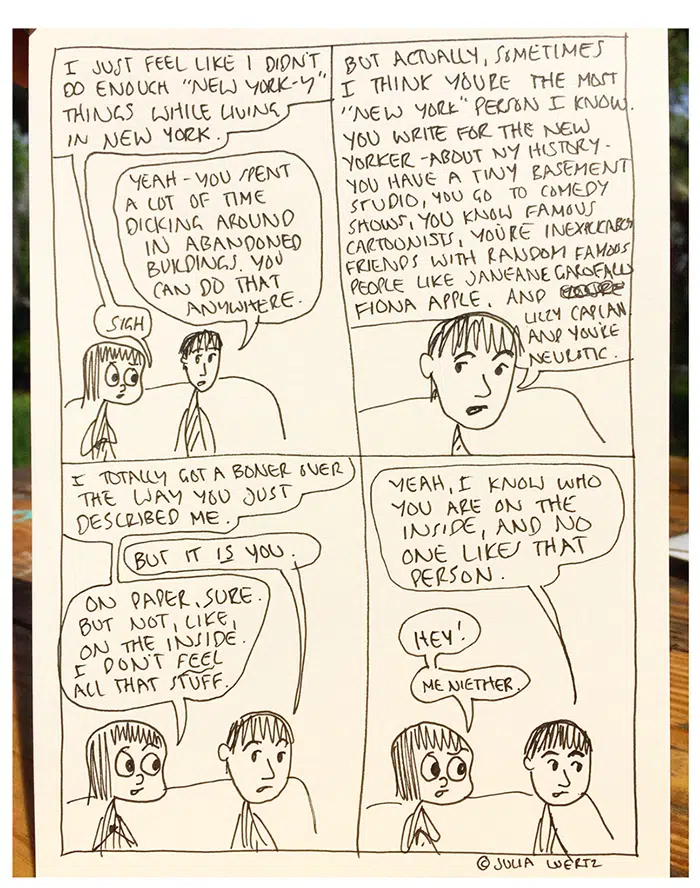 I JUST FEEL LIKE I DIDN'T
DO ENOUGH "NEW YORK-Y"
THINGS WHILE LIVING
IN NEW YORK.
YEAH - YOU SPENT
A LOT OF TIME
DICKING AROUND
IN ABANDONED
BUILDINGS. YOU
CAN DO THAT
ANYWHERE.
SIGH
BUT ACTUALLY, SOMETIMES
I THINK YOU'RE THE MOST
"NEW YORK" PERSON I KNOW.
YOU WRITE FOR THE NEW
YORKER - ABOUT NY HISTORY -
YOU HAVE A TINY BASEMENT
STUDIO, YOU GO TO COMEDY
SHOWS, YOU KNOW FAMOUS
CARTOONISTS, YOU'RE INEXPLICABLY
FRIENDS WITH RANDOM FAMOUS
PEOPLE LIKE JANEANE GAROFALO
FIONA APPLE. AND
LIZZY CAPLAN
AND YOU'RE
NEUROTIC.
I TOTALLY GOT A BONER OVER
THE WAY YOU JUST
DESCRIBED ME.
BUT IT IS YOU.
ON PAPER, SURE.
BUT NOT, LIKE,
ON THE INSIDE.
I DON'T FEEL
ALL THAT STUFF.
YEAH, I KNOW WHO
YOU ARE ON THE
INSIDE, AND NO
ONE LIKES THAT
PERSON.
HEY!
ME NIETHER.
© JULIA WERTZ